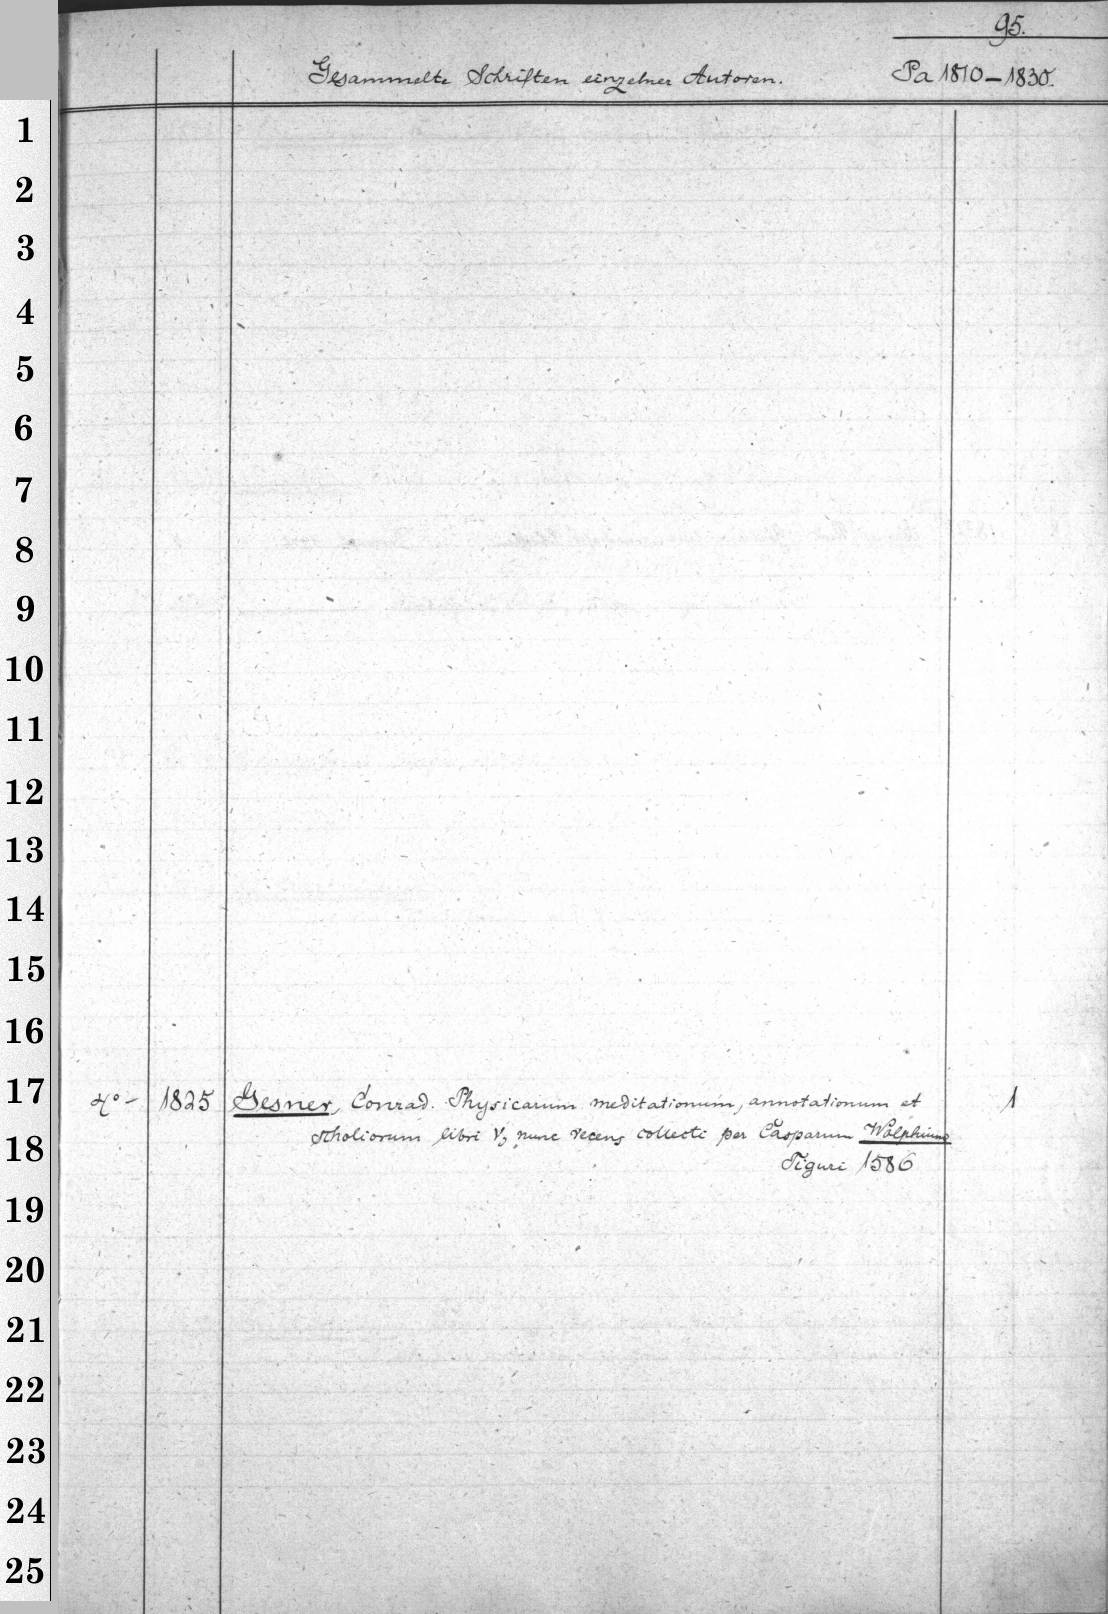 95.
Gesammelte Schriften einzelner Autoren. Pa 1810-1830.
1
2
3
4
5
6
7
8
9
10
11
12
13
14
15
16
17 4°- 1825 Gesner, Conrad. Physicarum meditationum, annotationum et 1
scholiorum libri V, nunc recens collecti per Casparum Wolphium
18
Tiguri 1586
19
20
21
22
23
24
25